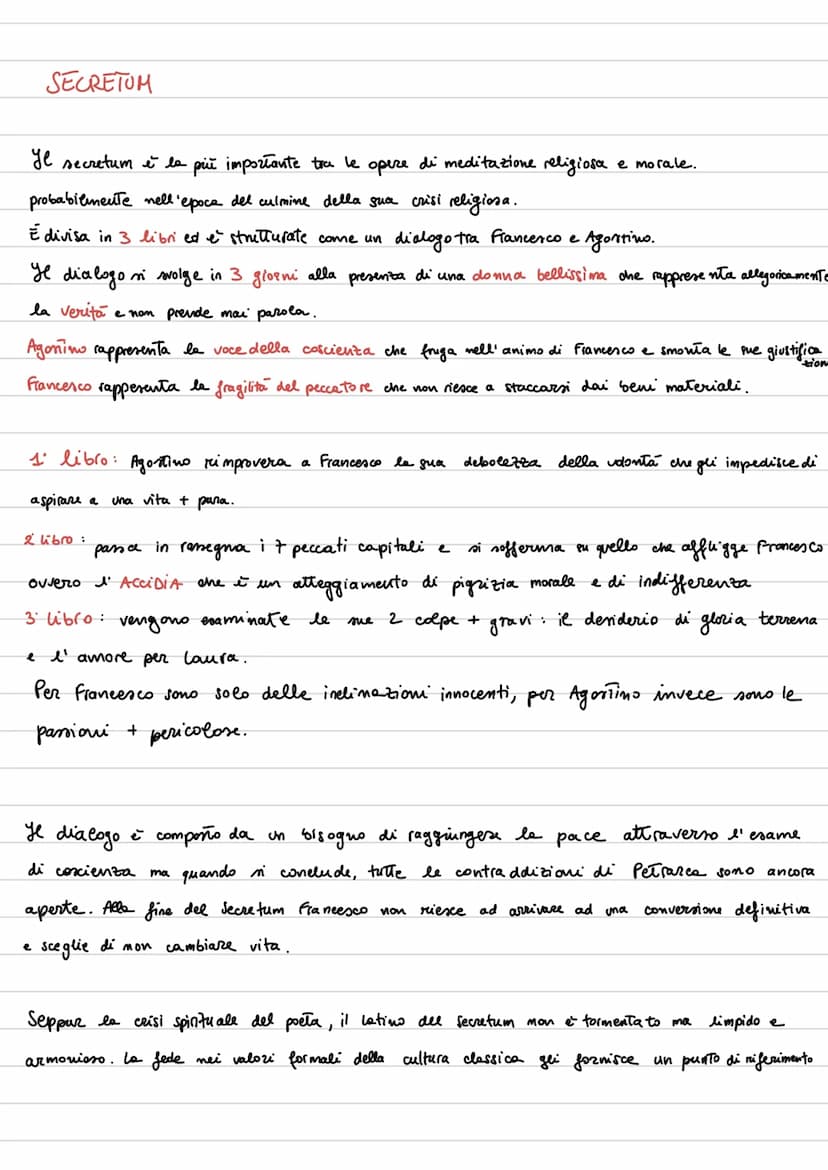 SECRETUM
Il secretum è la più importante tra le opere di meditazione religiosa e morale.
probabilmente nell'epoca del culmine della sua crisi religiosa.
È divisa in 3 libri ed è strutturate come un dialogo tra Francesco e Agostino.
Il dialogo si svolge in 3 giorni alla presenza di una donna bellissima che rappresenta allegoricamente
la verità e non prende mai parola.
Agostino rappresenta la voce della coscienza che fruga nell'animo di Francesco e smonta le sue giustificazioni
Francesco rapperenta la fragilità del peccatore che non riesce a staccarsi dai beni materiali.
1° libro: Agostino rimprovera a Francesco la sua debolezza della volontà che gli impedisce di
aspirare a una vita + pura.
2° libro: passa in rassegna i 7 peccati capitali e si sofferma su quello che affligge Francesco
ovvero l'ACCIDIA che è un atteggiamento di pigrizia morale e di indifferenza
3° libro: vengono esaminate le sue 2 colpe + gravi: il desiderio di gloria terrena
e l'amore per Laura.
Per Francesco sono solo delle inclinazioni innocenti, per Agostino invece sono le
passioni + pericolose.
Il dialogo è composto da un bisogno di raggiungere la pace attraverso l'esame
di coscienza ma quando si conclude, tutte le contraddizioni di Petrarca sono ancora
aperte. Alla fine del Secretum Francesco non riesce ad arrivare ad una conversione definitiva
e sceglie di non cambiare vita.
Seppur la crisi spirituale del poeta, il latino del secretum non è tormentato ma limpido e
armonioso. La fede nei valori formali della cultura classica gli fornisce un punto di riferimento